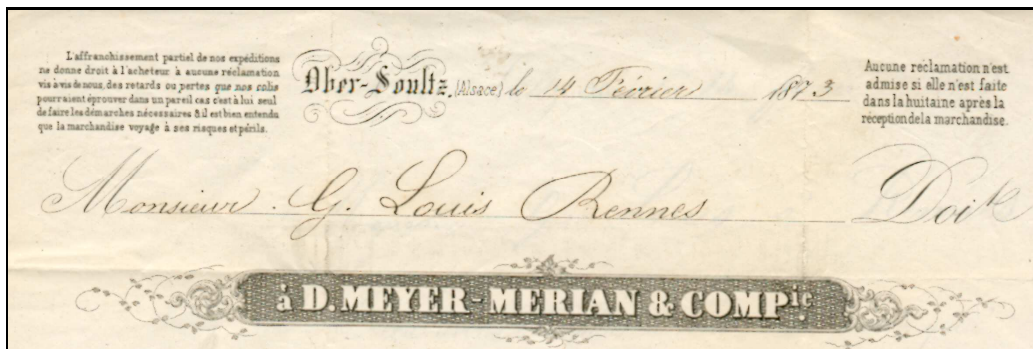 L'affranchissement partiel de nos expéditions
ne donne droit à l'acheteur à aucune réclamation
vis à vis de nous, des retards ou pertes que nos colis
pourraient éprouver dans un pareil cas c'est à lui seul
de faire les démarches nécessaires & il est bien entendu
que la marchandise voyage à ses risques et périls.
Ober-Soultz, (Alsace) le 14 Février 1873
Aucune réclamation n'est
admise si elle n'est faite
dans la huitaine après la
réception de la marchandise.
Monsieur G. Louis Rennes Doit
à D. MEYER-MERIAN & COMPie.